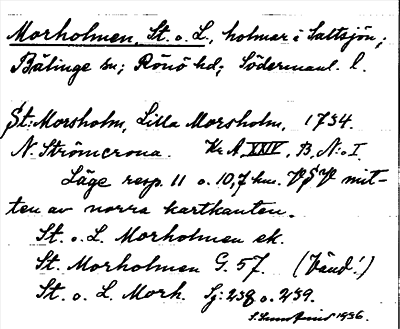 Morholmen, St. o. L., holmar i Saltsjön;
Bälinge sn; Rönö hd; Södermanl. l.
St. Morsholm, Lilla Morsholm, 1734.
N. Strömcrona. Kr. A. XXIV, B, N:o I.
Läge resp. 11 o. 10,7 km. VSV mit-
ten av norra kartkanten.
St. o. L. Morholmen ek.
St. Morholmen G. 57. (Vänd!)
St. o. L. Morh. Sj: 238 o. 239.
1936.